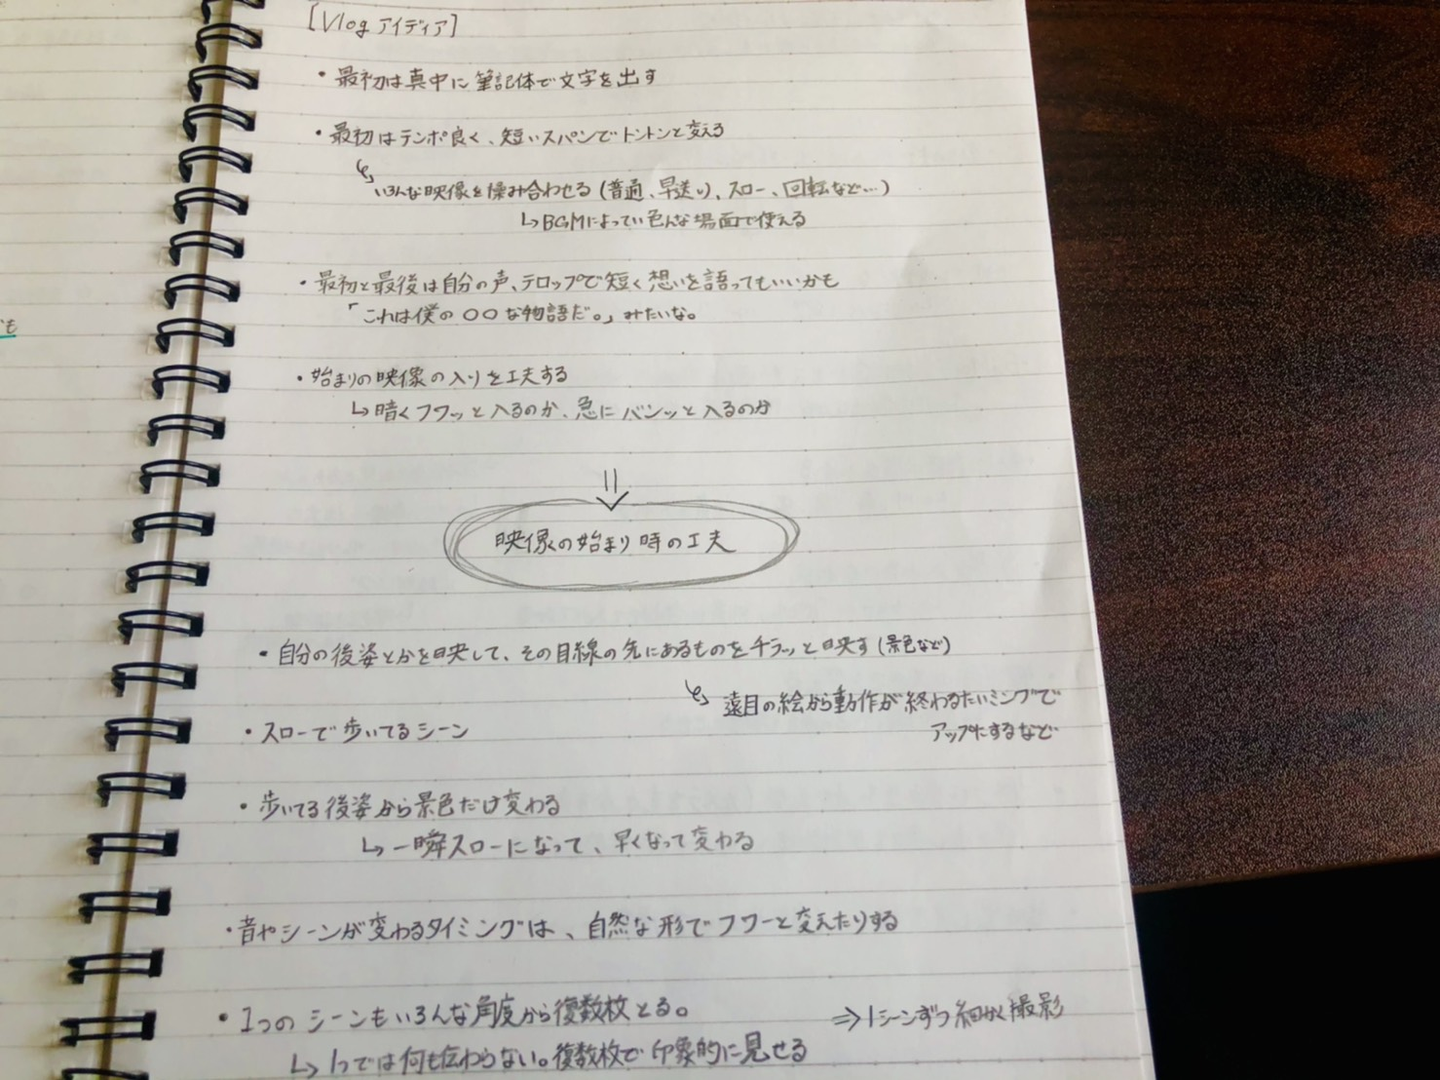 [Vlog アイディア]
・最初は真中に筆記体で文字を出す
・最初はテンポ良く、短いスパンでトントンと変える
いろんな映像を組み合わせる(普通、早送り、スロー、回転など…)
↳BGMによってい色んな場面で使える
・最初と最後は自分の声、テロップで短く想いを語ってもいいかも
「これは僕の〇〇な物語だ。」みたいな。
・始まりの映像の入りを工夫する
↳暗くフワッと入るのか、急にバンッと入るのか
映像の始まり時の工夫
・自分の後姿とかを映して、その目線の先にあるものをチラッと映す(景色など)
遠目の絵から動作が終わるたいミングで
アップにするなど
・スローで歩いてるシーン
・歩いてる後姿から景色だけ変わる
↳一瞬スローになって、早くなって変わる
・音やシーンが変わるタイミングは、自然な形でフワーと変えたりする
・1つのシーンもいろんな角度から復数枚とる。 ⇒1シーンずつ細かく撮影
↳1つでは何も伝わらない。復数枚で印象的に見せる
も